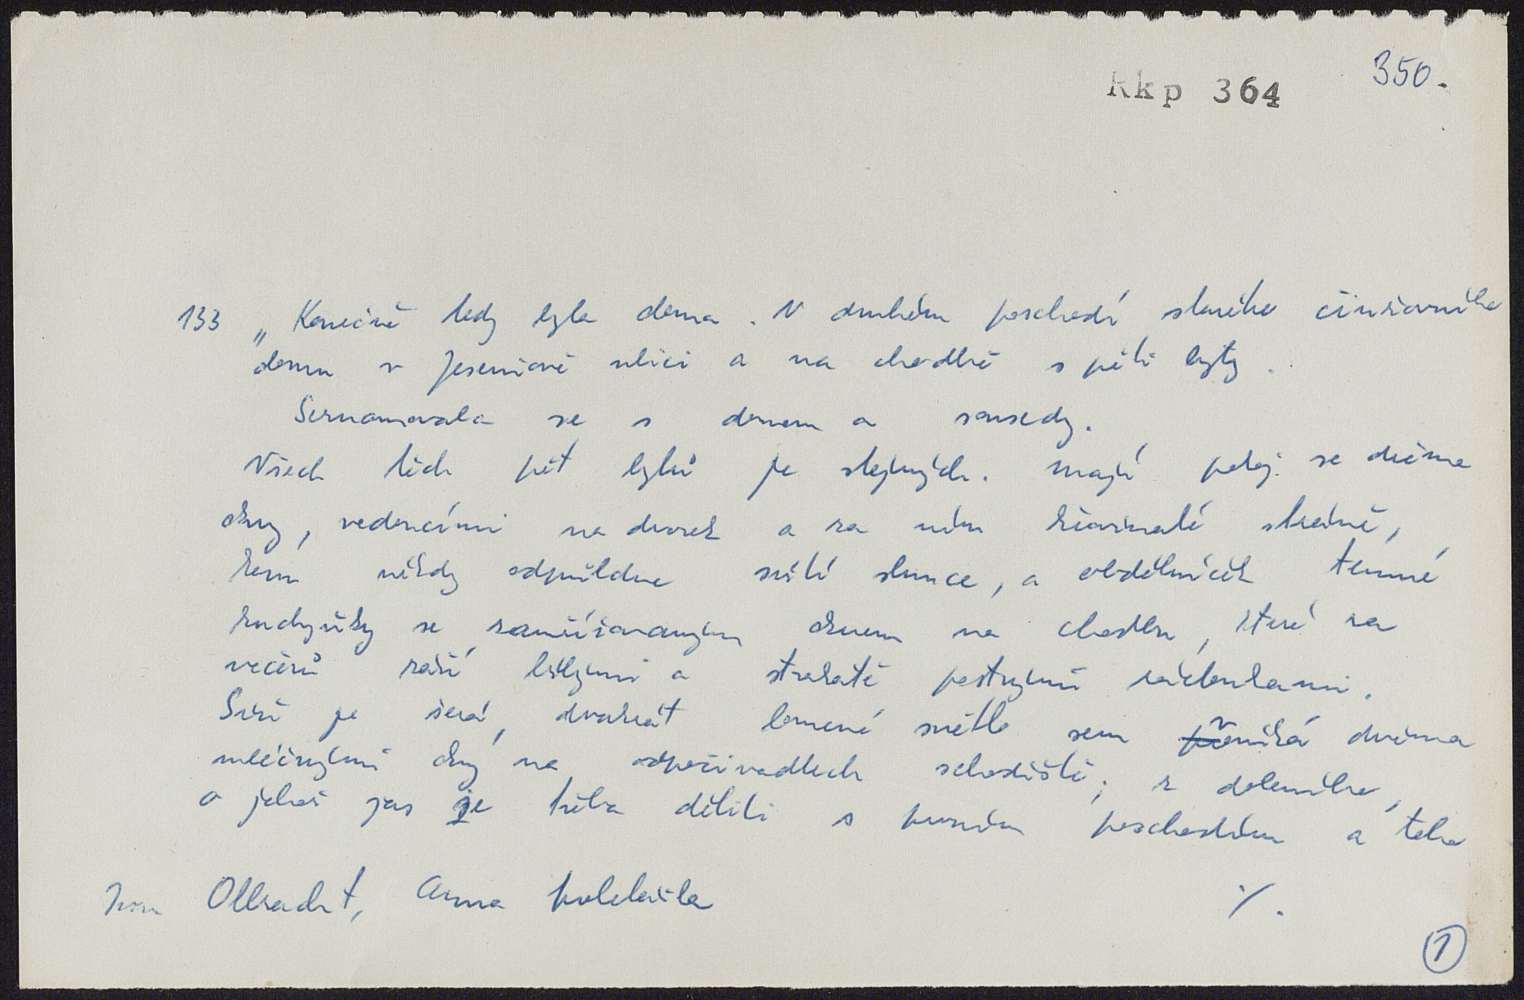 Rkp 364
350.
133 „Konečně tedy byla doma. V druhém poschodí starého činžovního
domu v Jeseniově ulici a na chodbě s pěti byty.
Seznamovala se s domem a sousedy.
Všech těch pět bytů je stejných. Mají pokoj se dvěma
okny, vedoucími na dvorek a za ním na
kam někdy odpůldne svítí slunce, a obdélníček temné
kuchyňky se zamřížovaným oknem na chodbu, které za
večerů září bílými a strakatě pestrými záclonkami.
Širé je šerá, dvakrát lomené světlo sem proniká dvěma
mléčnými okny na odpočivadlech schodiště; z dolením,
o jehož jas je třeba děliti s prvním poschodím a toho
Ivan Olbracht, Anna proletářka
./.
1